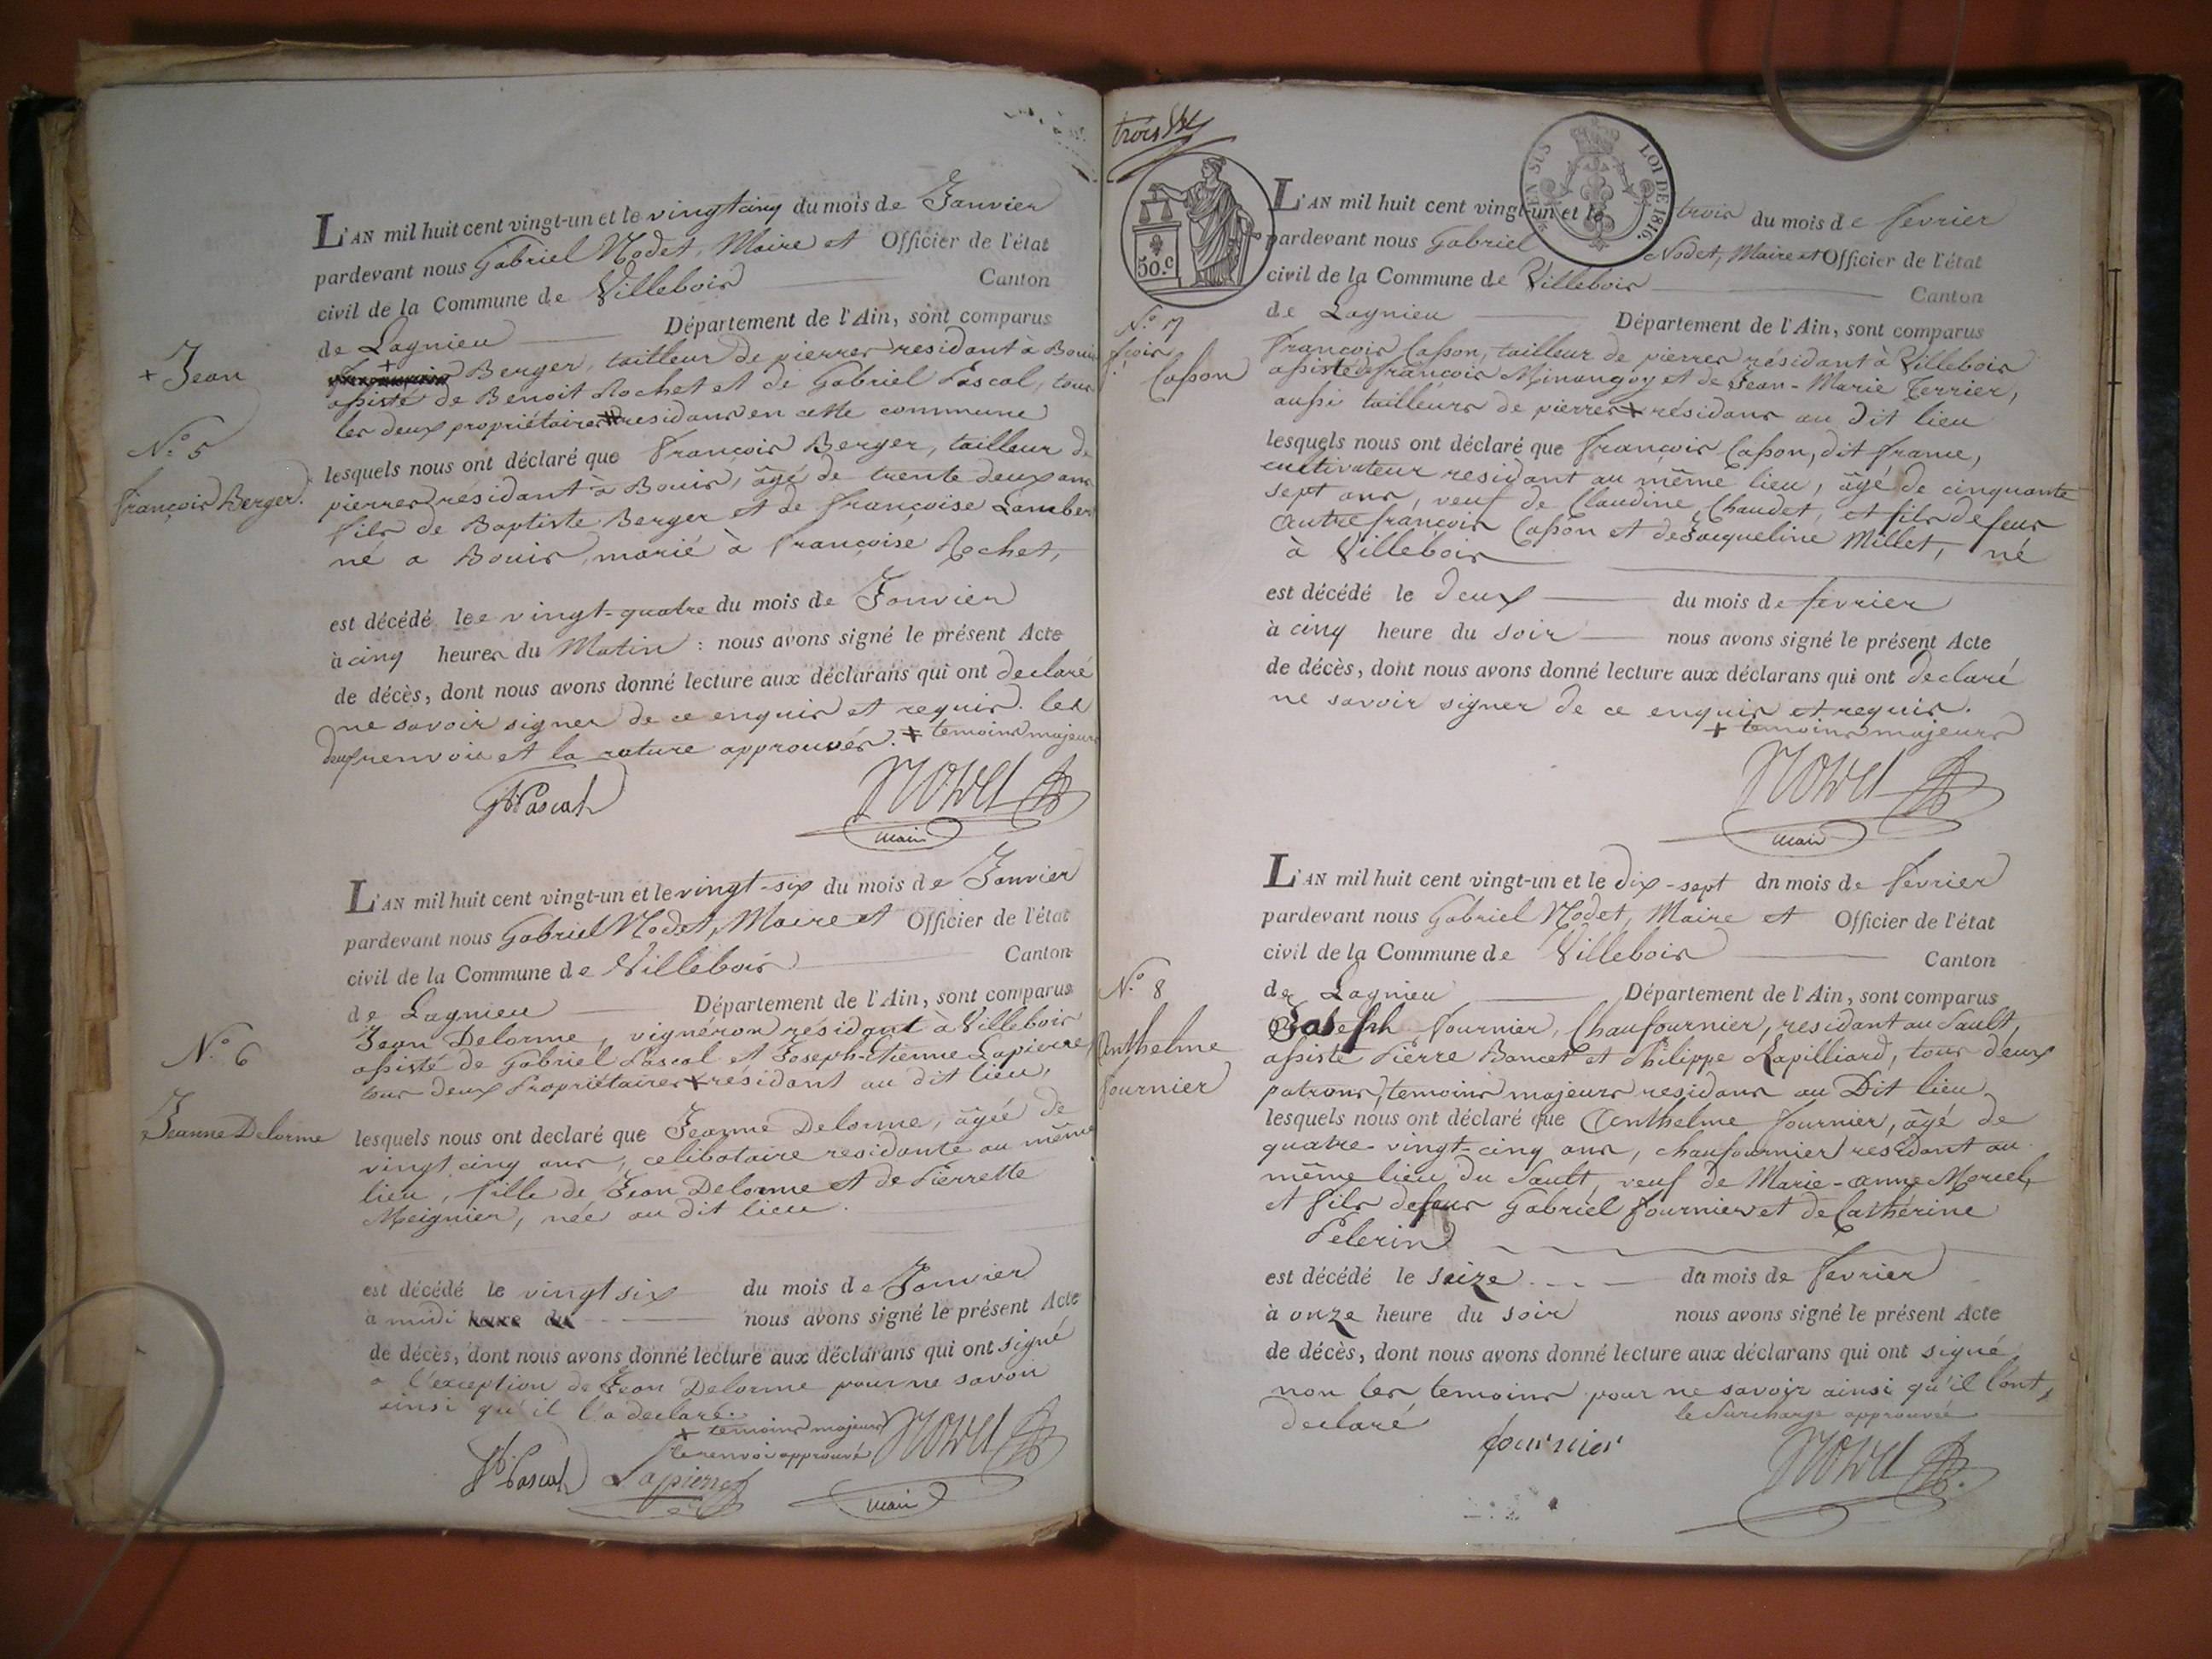 L'AN mil huit cent vingt-un et le vingt cinq du mois de Janvier
pardevant nous Gabriel Nodet, Maire et Officier de l'état
civil de la Commune de Villebois Canton
de Lagnieu Département de l'Ain, sont comparus
+ Jean
+ Berger, tailleur de pierres résidant à Bouis
assisté de Benoit Rochet et de Gabriel Pascal, tous
les deux propriétaires ⧺ residans en cette commune
N.o 5
François Berger.
lesquels nous ont déclaré que François Berger, tailleur de
pierres résidant à Bouis, âgé de trente deux ans
fils de Baptiste Berger et de Françoise Lambert
né a Bouis, marié à Françoise Rochet,
est décédé lee vingt-quatre du mois de Janvier
à cinq heures du Matin : nous avons signé le présent Acte
de décès, dont nous avons donné lecture aux déclarans qui ont declaré
ne savoir signer de ce enquis et requis. les
deux renvois et la rature approuvés. ⧺ temoins majeurs
Gb Pascal Nodet
maire
L'AN mil huit cent vingt-un et le vingt-six du mois de Janvier
pardevant nous Gabriel Nodet, Maire et Officier de l'état
civil de la Commune de Villebois Canton
de Lagnieu Département de l'Ain, sont comparus
Jean Delorme, vignéron résidant à Villebois
assisté de Gabriel Pascal et Joseph-Etienne Lapierre
tous deux Propriétaires + résidant au dit lieu,
N.o 6
Jeanne Delorme
lesquels nous ont declaré que Jeanne Delorme, âgée de
vingt cinq ans, celibataire residante au même
lieu, fille de Jean Delorme et de Pierrette
Meignier, née au dit lieu.
est décédé le vingt six du mois de Janvier
a midi heure du nous avons signé le présent Acte
de décès, dont nous avons donné lecture aux déclarans qui ont signé
a l'exception de Jean Delorme pour ne savoir
ainsi qu'il l'a declaré.
+ temoins majeurs
le renvoi approuvé
Gb Pascal Lapierre Nodet
maire
trois
50.c
EN SUS LOI DE 1816.
L'AN mil huit cent vingt-un et le trois du mois de fevrier
pardevant nous Gabriel Nodet, Maire et Officier de l'état
civil de la Commune de Villebois Canton
de Lagnieu Département de l'Ain, sont comparus
N.o 7
fçois
Casson
François Casson, tailleur de pierres résidant à Villebois
assisté de françois Minangoy et de Jean-Marie Terrier,
aussi tailleurs de pierres + résidans au dit lieu
lesquels nous ont déclaré que françois Casson, dit frame,
cultivateur residant au même lieu, âgé de cinquante
sept ans, veuf de Claudine Chaudet, et fils de feus
autre françois Casson et de Jacqueline Millet, né
à Villebois
est décédé le deux du mois de fevrier
à cinq heure du soir nous avons signé le présent Acte
de décès, dont nous avons donné lecture aux déclarans qui ont declaré
ne savoir signer de ce enquis et requis.
+ temoins majeurs
Nodet
maire
L'AN mil huit cent vingt-un et le dix-sept dn mois de fevrier
pardevant nous Gabriel Nodet, Maire et Officier de l'état
civil de la Commune de Villebois Canton
de Lagnieu Département de l'Ain, sont comparus
N.o 8
Anthelme
fournier
Joseph fournier, Chaufournier, residant au Sault,
assisté Pierre Bancet et Philippe Lapilliard, tous deux
patrons, temoins majeurs residans au Dit lieu
lesquels nous ont déclaré que Anthelme fournier, âgé de
quatre-vingt-cinq ans, chaufournier residant au
même lieu du Sault, veuf de Marie-anne Morel,
et fils de feus Gabriel fournier et de Cathérine
Pelerin
est décédé le seize du mois de fevrier
à onze heure du soir nous avons signé le présent Acte
de décès, dont nous avons donné lecture aux déclarans qui ont signé,
non les temoins pour ne savoir ainsi qu'il l'ont
declaré le Surcharge approuvée
fournier Nodet